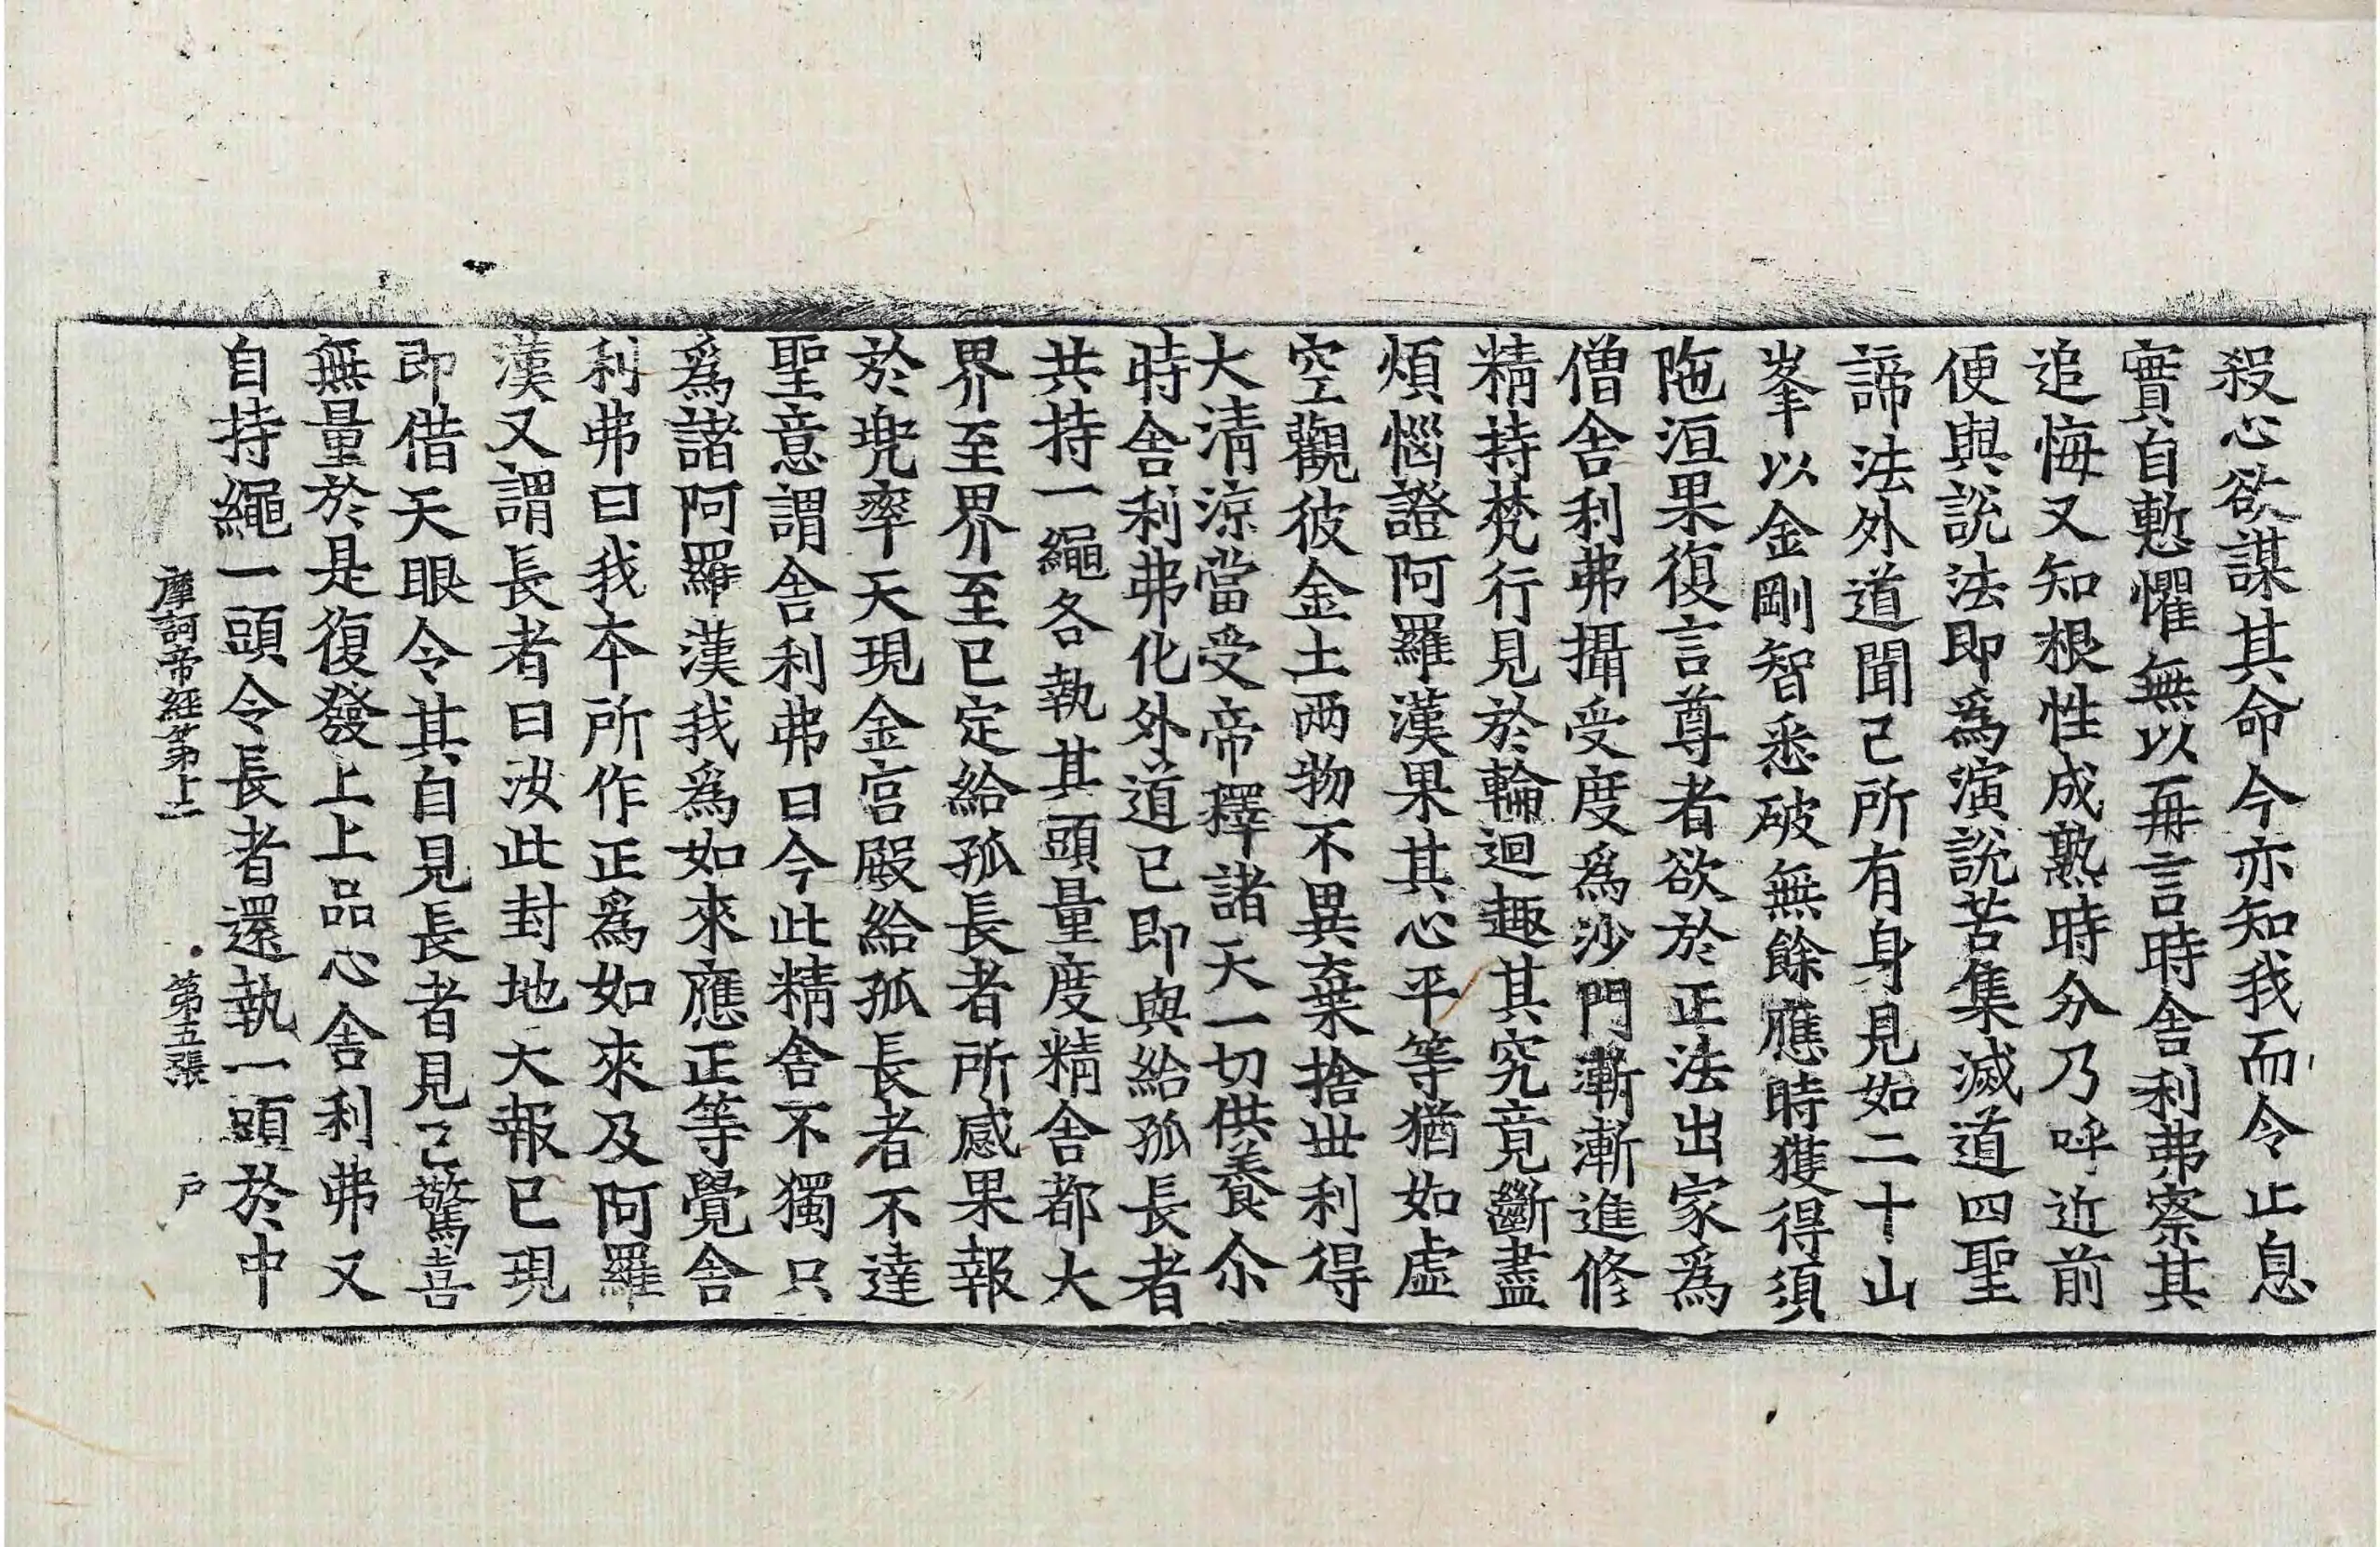 殺心欲謀其命今亦知我而令止息
實自慙懼無以再言時舍利弗察其
追悔又知根性成熟時分乃呼近前
便與說法即爲演說苦集滅道四聖
諦法外道聞已所有身見如二十山
峯以金剛智悉破無餘應時獲得須
陁洹果復言尊者欲於正法出家爲
僧舍利弗攝受度爲沙門漸漸進修
精持梵行見於輪迴趣其究竟斷盡
煩惱證阿羅漢果其心平等猶如虛
空觀彼金土兩物不異棄捨丗利得
大清涼當受帝釋諸天一切供養尒
時舍利弗化外道已即與給孤長者
共持一繩各執其頭量度精舍都大
界至界至已定給孤長者所感果報
於兜率天現金宮殿給孤長者不達
聖意謂舍利弗曰今此精舍不獨只
爲諸阿羅漢我爲如來應正等覺舍
利弗曰我本所作正爲如來及阿羅
漢又謂長者曰汝此封地大報已現
即借天眼令其自見長者見已驚喜
無量於是復發上上品心舍利弗又
自持繩一頭令長者還執一頭於中
摩訶帝經第十二 第五張 戶